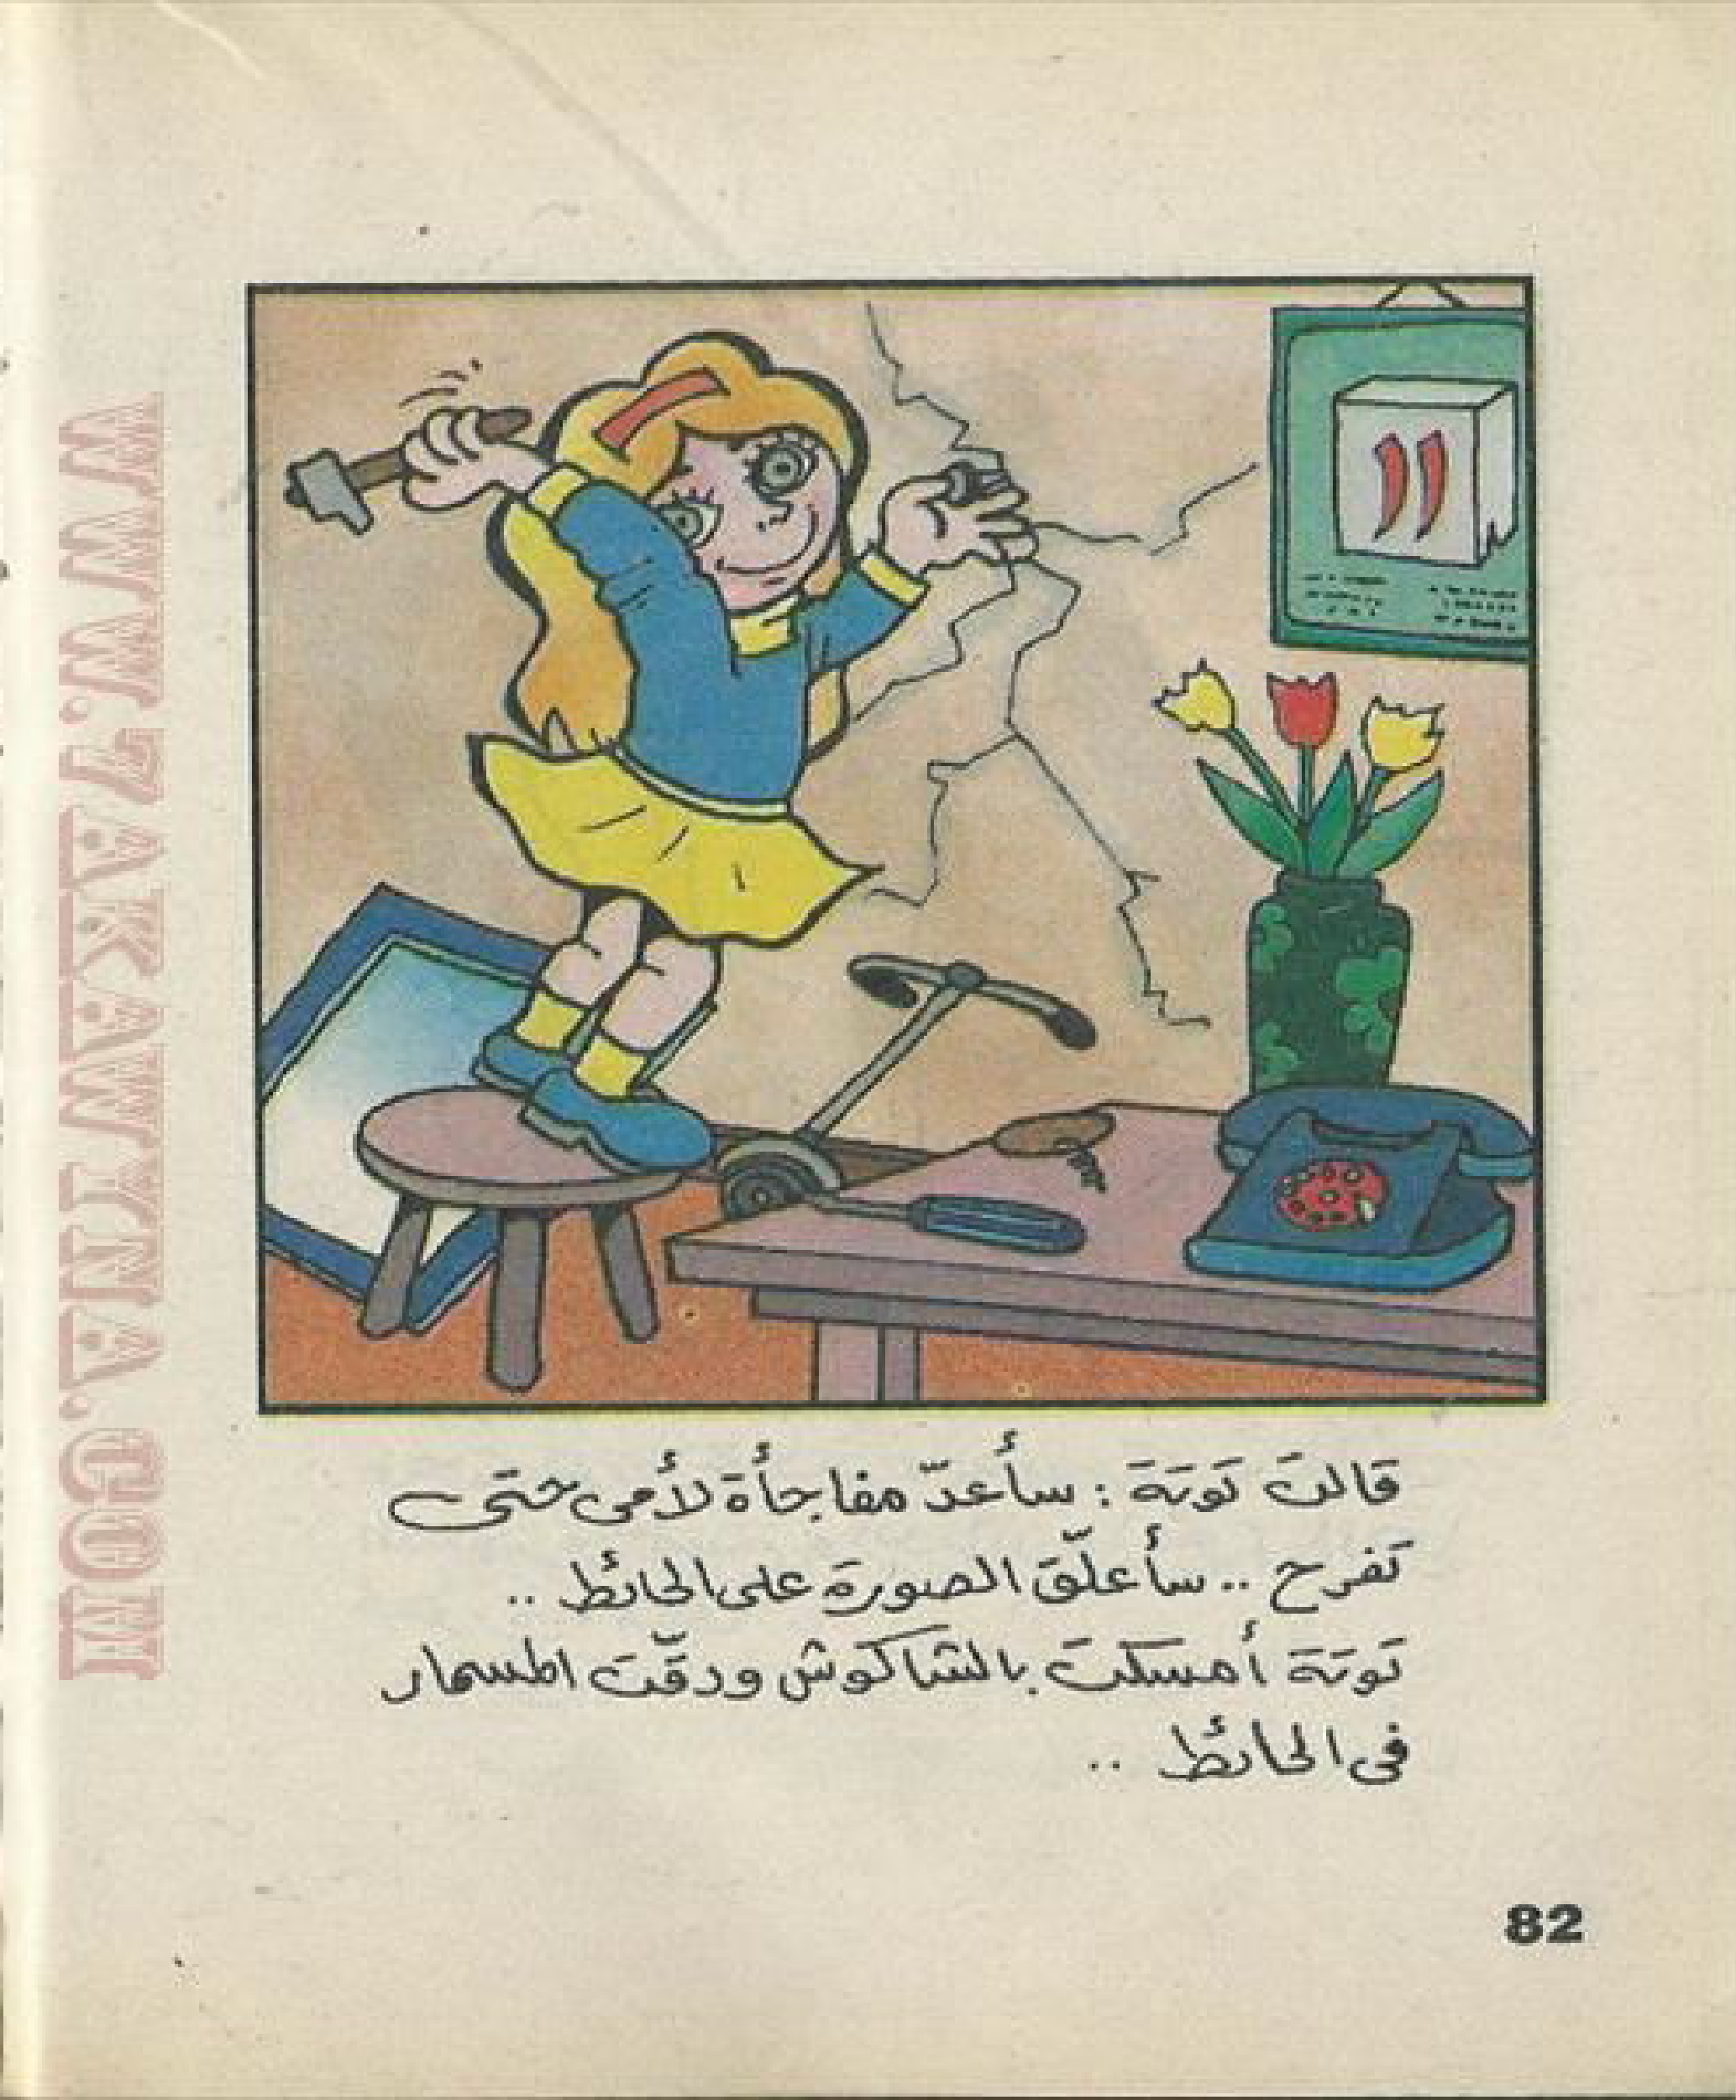 ١١
قالت توتة : سأعدّ مفاجأة لأمى حتى
تفرح .. سأعلّق الصورة على الحائط ..
توتة أمسكت بالشاكوش ودقّت المسمار
فى الحائط ..
82
WWW.7AKAWITNA.COM